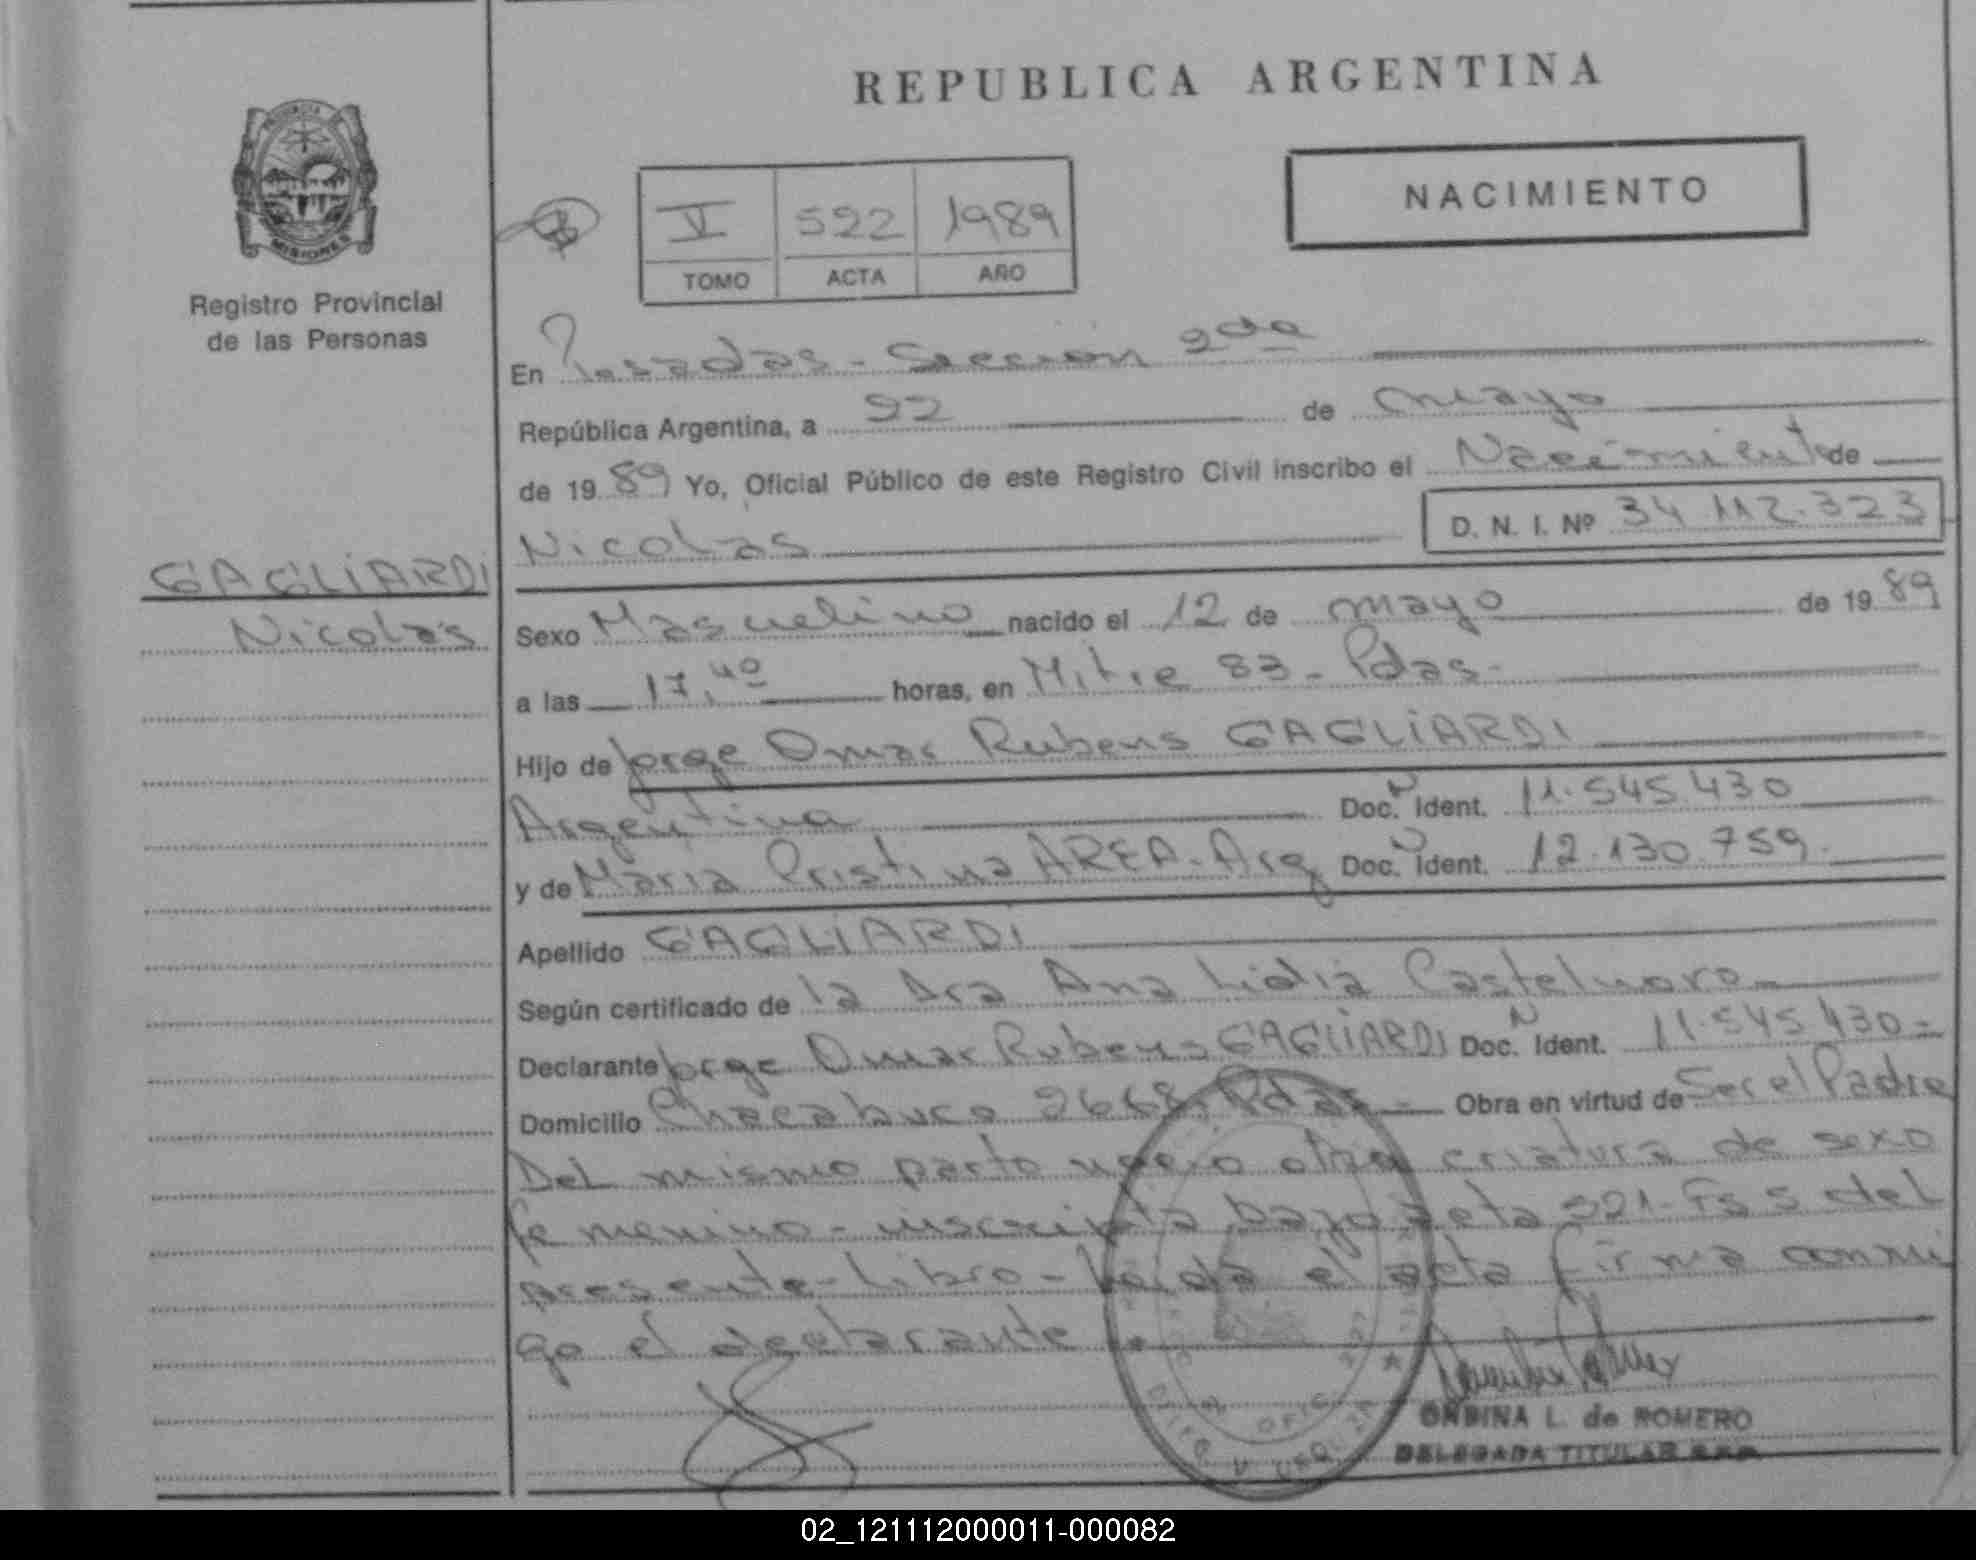 REPUBLICA ARGENTINA
NACIMIENTO
MISIONES
Registro Provincial
de las Personas
V 522 1989
TOMO ACTA AÑO
En Posadas - Sección 2da
República Argentina, a 22 de mayo
de 1989 Yo, Oficial Público de este Registro Civil inscribo el Nacimiento de
Nicolas D. N. I. Nº 34.112.323
GAGLIARDI
Nicolas
Sexo Masculino nacido el 12 de mayo de 1989
a las 17,40 horas, en Mitre 83 - Pdas-
Hijo de Jorge Omar Rubens GAGLIARDI
Argentina Doc. N Ident. 11.545.430
y de Maria Cristina AREA - Arg Doc. N Ident. 12.130.759.
Apellido GAGLIARDI
Según certificado de la Dra Ana Lidia Castelnovo
Declarante Jorge Omar Rubens GAGLIARDI Doc. N Ident. 11.545.430-
Domicilio Chacabuco 2668 Pdas - Obra en virtud de Ser el Padre
Del mismo parto nació otra criatura de sexo
femenino - inscripta bajo acta 521 - Fs 5 del
presente - Libro - Leida el acta firma conmi
go el declarante
ONDINA L. de ROMERO
DELEGADA TITULAR
02_121112000011-000082